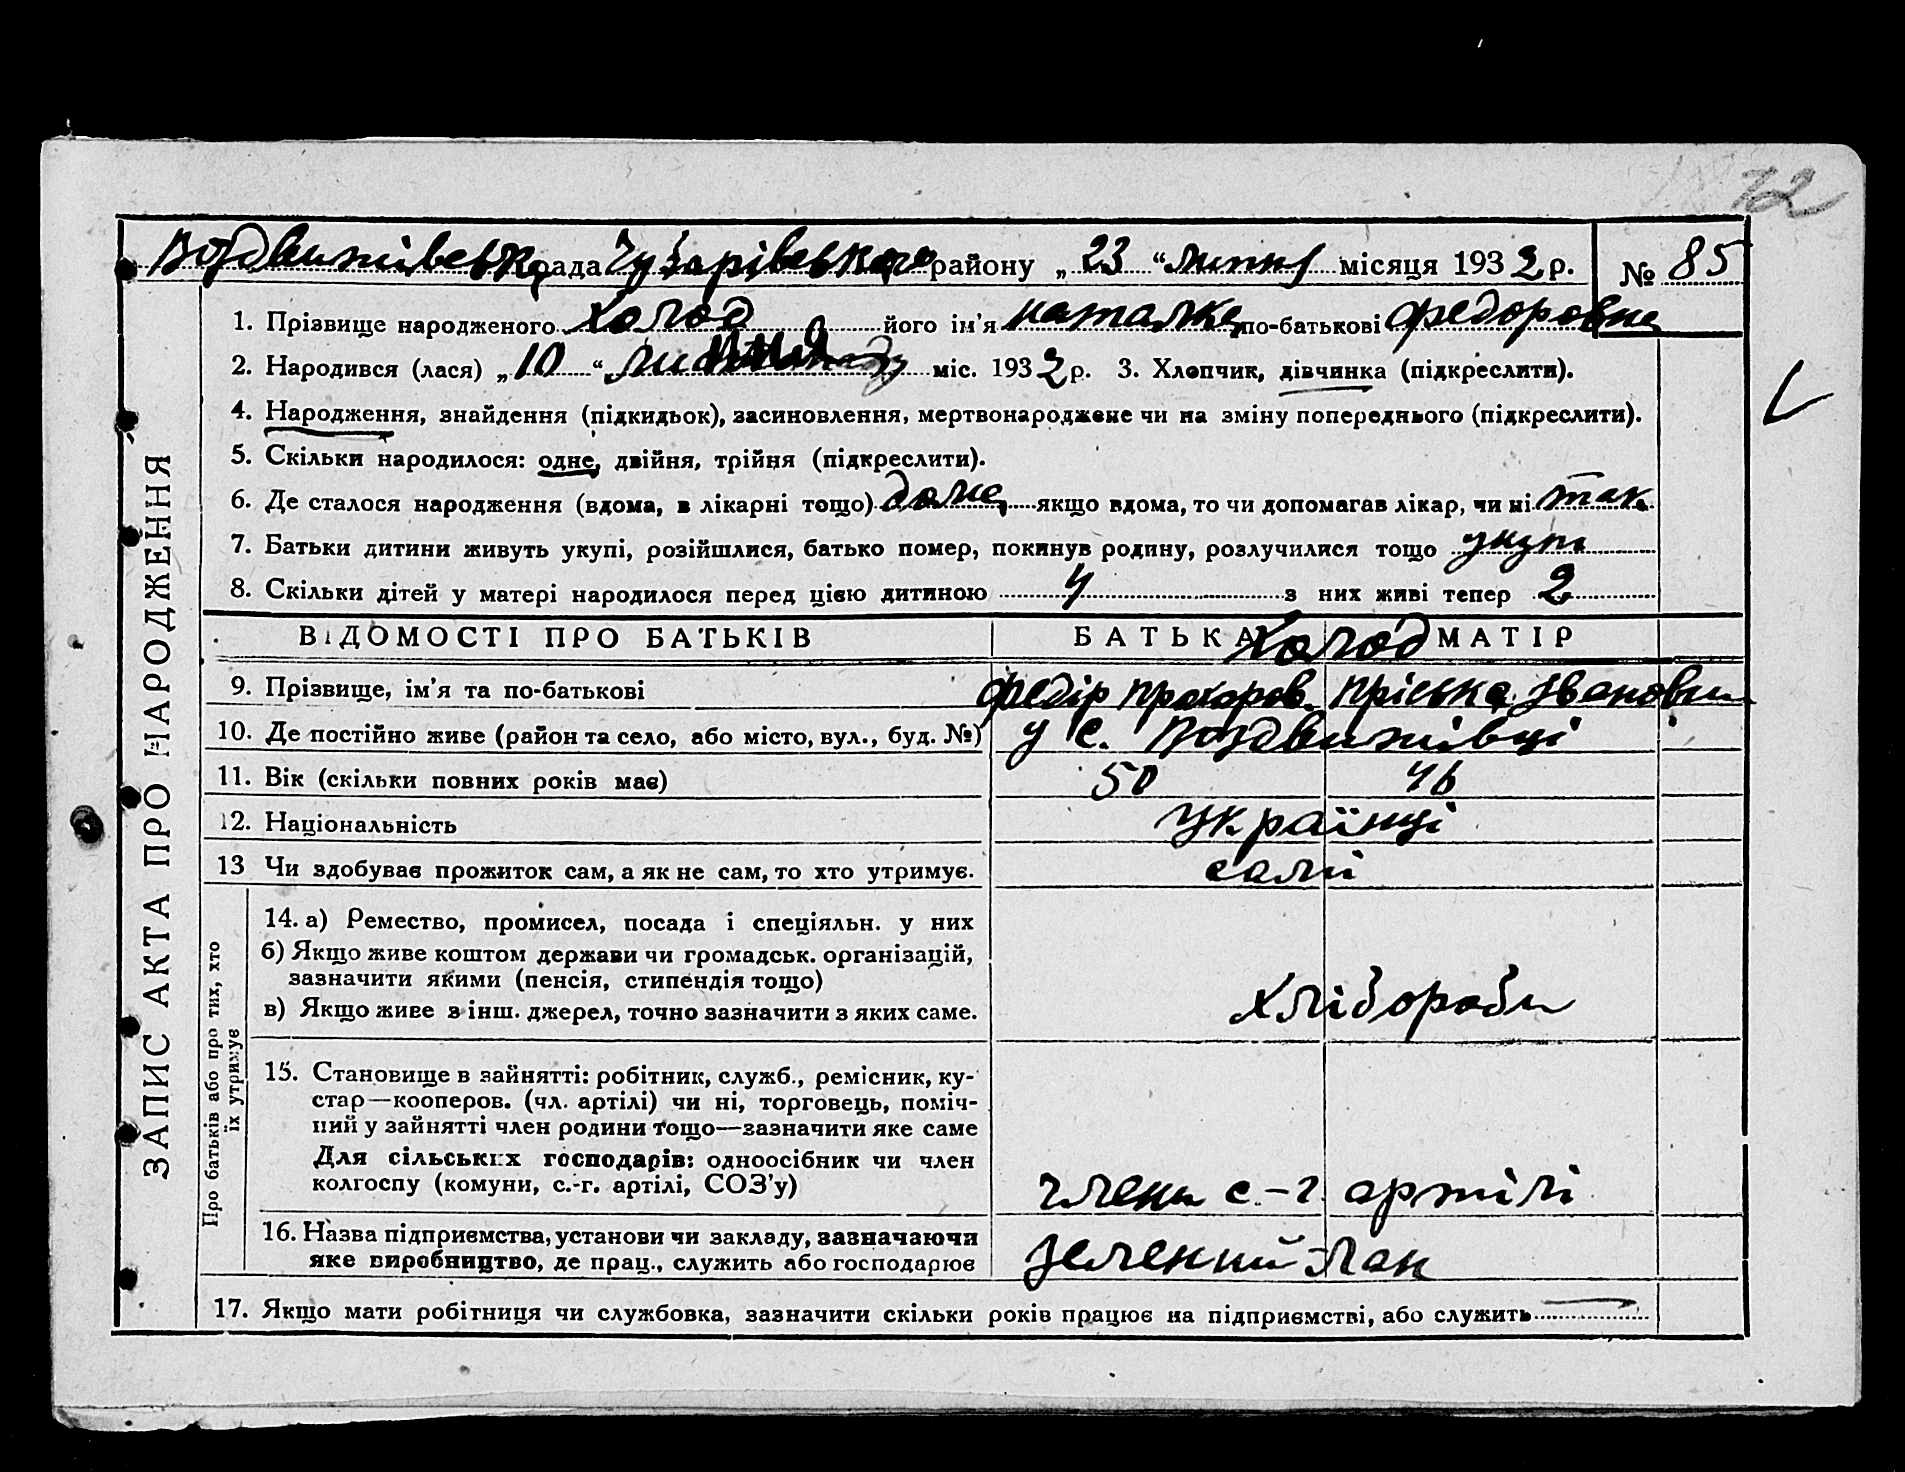 72
Воздвижівська рада Чубарівського району „ 23 “ липня місяця 1932 р. № 85
1. Прізвище народженого Холод його ім’я наталка по-батькові федоровна
2. Народився (лася) „ 10 “ міс. 1932 р. 3. Хлопчик, дівчинка (підкреслити).
4. Народження, знайдення (підкидьок), засиновлення, мертвонароджене чи на зміну попереднього (підкреслити).
5. Скільки народилося: одне, двійня, трійня (підкреслити).
6. Де сталося народження (вдома, в лікарні тощо) дома якщо вдома, то чи допомагав лікар, чи ні так
7. Батьки дитини живуть укупі, розійшлися, батько помер, покинув родину, розлучилися тощо укупі
8. Скільки дітей у матері народилося перед цією дитиною 4 з них живі тепер 2
ВІДОМОСТІ ПРО БАТЬКІВ БАТЬКА Холод МАТІР
9. Прізвище, ім’я та по-батькові федір прохоров. пріська Івановна
10. Де постійно живе (район та село, або місто, вул., буд. №) у с. Воздвижівці
11. Вік (скільки повних років має) 50 46
12. Національність Українці
13 Чи здобуває прожиток сам, а як не сам, то хто утримує. самі
14. а) Ремество, промисел, посада і спеціяльн. у них
б) Якщо живе коштом держави чи громадськ. організацій,
зазначити якими (пенсія, стипендія тощо)
в) Якщо живе з інш. джерел, точно зазначити з яких саме. хлібороби
15. Становище в зайнятті: робітник, служб., ремісник, ку-
стар—кооперов. (чл. артілі) чи ні, торговець, поміч-
ний у зайнятті член родини тощо—зазначити яке саме
Для сільських господарів: одноосібник чи член
колгоспу (комуни, с.-г. артілі, СОЗ’у) члени с-г артілі
16. Назва підприємства, установи чи закладу, зазначаючи
яке виробництво, де прац., служить або господарює Зелений Лан
17. Якщо мати робітниця чи службовка, зазначити скільки років працює на підприємстві, або служить
ЗАПИС АКТА ПРО НАРОДЖЕННЯ
Про батьків або про тих, хто
їх утримує